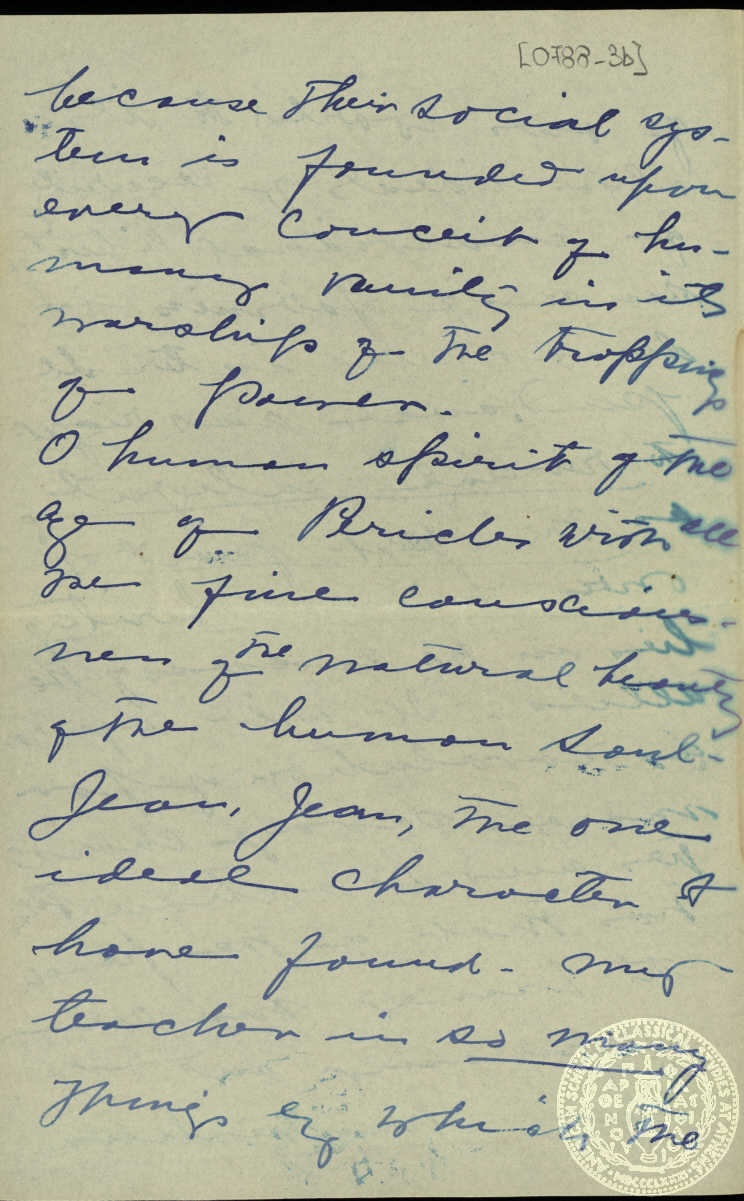 [0788-3b]
because their social sys-
tem is founded upon
every conceit of hu-
many vanity in its
worship of the trappings
of Power.
O human spirit of the
age of Pericles with all
the fine conscious-
ness of the natural beauty
of the human soul-
Jean, Jean, the one
ideal character I
have found - my
teacher in so many
things of which the
AMERICAN SCHOOL OF CLASSICAL STUDIES AT ATHENS
ΠΑΡΘΕΝΟΥ
MDCCCLXXXI